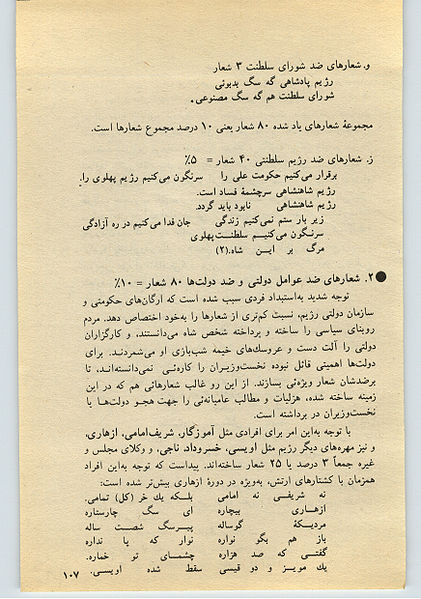 و. شعارهای ضد شورای سلطنت ۳ شعار
رژیم پادشاهی گه سگ بدبوئی
شورای سلطنت هم گه سگ مصنوعی.
مجموعهٔ شعارهای یاد شده ۸۰ شعار یعنی ۱۰ درصد مجموع شعارها است.
ز. شعارهای ضد رژیم سلطنتی ۴۰ شعار = ۵٪
برقرار می‌کنیم حکومت علی را سرنگون می‌کنیم رژیم پهلوی را.
رژیم شاهنشاهی سرچشمهٔ فساد است.
رژیم شاهنشاهی نابود باید گردد.
زیر بار ستم نمی‌کنیم زندگی جان فدا می‌کنیم در ره آزادگی
سرنگون می‌کنیم سلطنت پهلوی
مرگ بر این شاه.(۲)
۲. شعارهای ضد عوامل دولتی و ضد دولت‌ها ۸۰ شعار = ۱۰٪
توجه شدید به‌استبداد فردی سبب شده است که ارگان‌های حکومتی و
سازمان دولتی رژیم، نسبت کم‌تری از شعارها را به‌خود اختصاص دهد. مردم
روبنای سیاسی را ساخته و پرداخته شخص شاه می‌دانستند، و کارگزاران
دولتی را آلت دست و عروسك‌های خیمه شب‌بازی او می‌شمردند. برای
دولت‌ها اهمیتی قائل نبوده نخست‌وزیران را کاره‌ئی نمی‌دانسته‌اند، تا
برضدشان شعار ویژه‌ئی بسازند. از این رو غالب شعارهائی هم که در این
زمینه ساخته شده، هزلیات و مطالب عامیانه‌ئی را جهت هجو دولت‌ها یا
نخست‌وزیران در برداشته است.
با توجه به‌این امر برای افرادی مثل آموزگار، شریف‌امامی، ازهاری،
و نیز مهره‌های دیگر رژیم مثل اویسی، خسروداد، ناجی، و وکلای مجلس و
غیره جمعاً ۳ درصد یا ۲۵ شعار ساخته‌اند. پیداست که توجه به‌این افراد
همزمان با کشتارهای ارتش، به‌ویژه در دورهٔ ازهاری بیش‌تر شده است:
نه شریفی نه امامی بلـکه یك خر (کل) تمامی.
ازهـاری بیچاره ای سگ چارستاره
مردیـکهٔ گوساله پیـرسگ شصـت ساله
باز هم بگو نواره نوار که پا نداره
گفتـی که صد هزاره چشمـای تو خماره.
یك مویـز و دو قیسی سقط شده اویسی.
۱۰۷